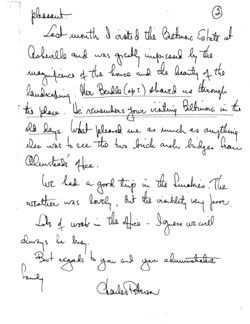 pleasant.
②
Last month I visited the Biltmore Estate at
Asheville and was greatly impressed by the
magnificence of the house and the beauty of the
landscaping. Mr Beadle (sp?) showed us through
the place. He remembers your visiting Biltmore in the
old days. What pleased me as much as anything
else was to see the two brick arch bridges from
Olmsted's office.
We had a good trip in the Smokies. The
weather was lovely, but the visibility very poor.
Lots of work in the office - I guess we will
always be busy.
Best regards to you and your
family
Charles Peterson